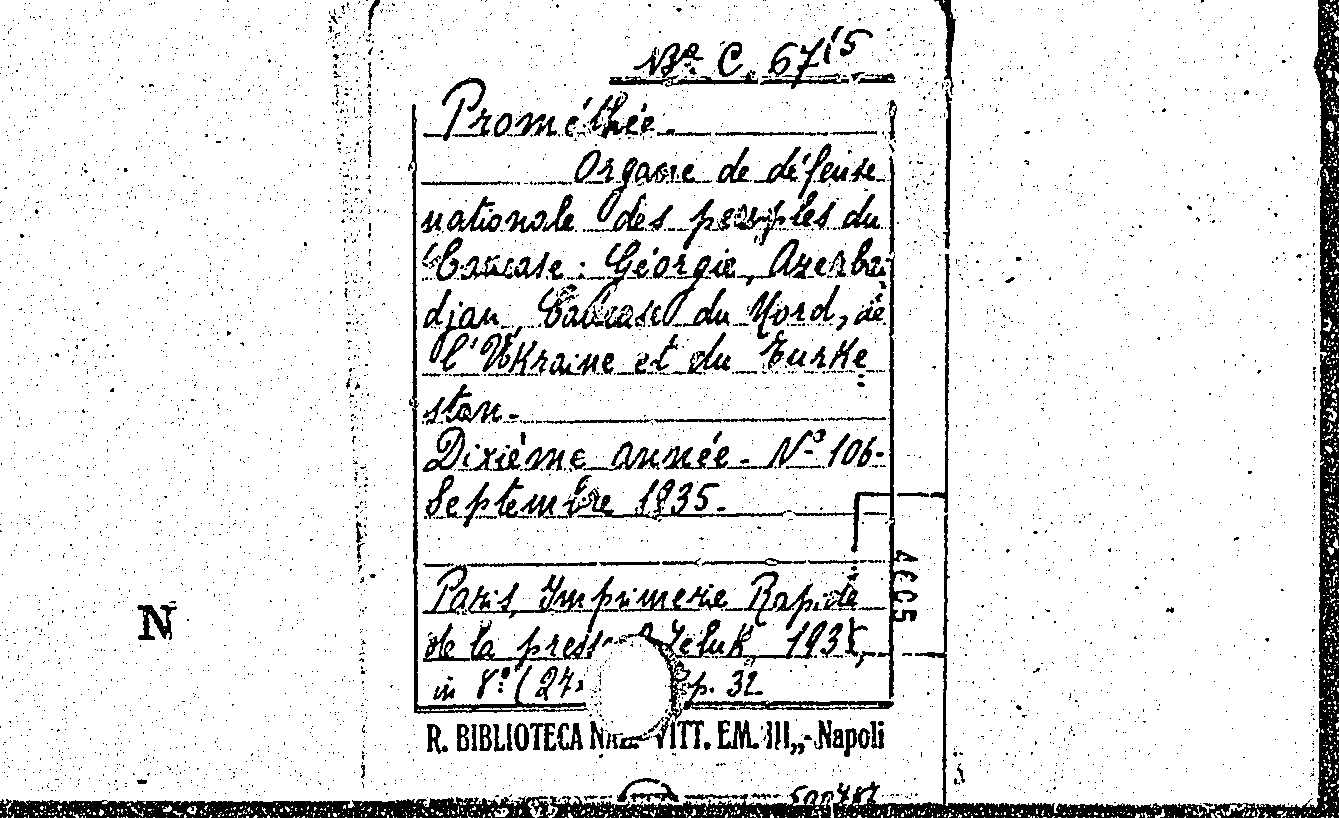 Bª C. 67(5
Prométhée.
Organe de défense
nationale des peuples du
Caucase : Géorgie, Azerbaï
djan, Caucase du Nord, de
l'Ukraine et du Turke
stan.
Dixième année. Nº 106.
Septembre 1935.
Paris, Imprimerie Rapide
4605
de la presse 1935,
N
in 8º (24 p. 32
R. BIBLIOTECA VITT. EM. III„-Napoli